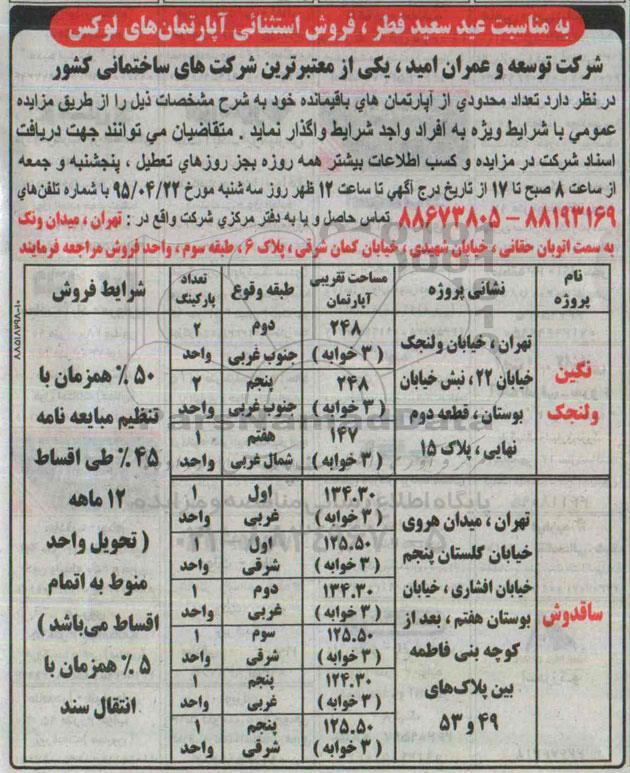 به مناسبت عید سعید فطر ، فروش استثنائی آپارتمان‌های لوکس
شرکت توسعه و عمران امید ، یکی از معتبرترین شرکت های ساختمانی کشور
در نظر دارد تعداد محدودي از آپارتمان هاي باقیمانده خود به شرح مشخصات ذیل را از طریق مزایده
عمومي با شرایط ویژه به افراد واجد شرایط واگذار نماید . متقاضیان می توانند جهت دریافت
اسناد شرکت در مزایده و کسب اطلاعات بیشتر همه روزه بجز روزهاي تعطیل ، پنجشنبه و جمعه
از ساعت ۸ صبح تا ۱۷ از تاریخ درج آگهي تا ساعت ۱۲ ظهر روز سه شنبه مورخ ۹۵/۰۴/۲۲ با شماره تلفن‌هاي
۸۸۱۹۳۱۶۹ – ۸۸۶۷۳۸۰۵ تماس حاصل و یا به دفتر مرکزي شرکت واقع در : تهران ، میدان ونک
به سمت اتوبان حقانی ، خیابان شهیدی ، خیابان کمان شرقی ، پلاک ۶ ، طبقه سوم ، واحد فروش مراجعه فرمایند
نام پروژه
نشانی پروژه
مساحت تقریبی آپارتمان
طبقه وقوع
تعداد پارکینگ
شرایط فروش
نگین ولنجک
تهران ، خیابان ولنجک
خیابان ۲۲ ، نبش خیابان
بوستان ، قطعه دوم
نهایی ، پلاک ۱۵
۲۴۸ ( ۳ خوابه )
دوم جنوب غربی
۲ واحد
۲۴۸ ( ۳ خوابه )
پنجم جنوب غربی
۲ واحد
۱۴۷ ( ۳ خوابه )
هفتم شمال غربی
۱ واحد
ساقدوش
تهران ، میدان هروی
خیابان گلستان پنجم
خیابان افشاری ، خیابان
بوستان هفتم ، بعد از
کوچه بنی فاطمه
بین پلاک‌های
۴۹ و ۵۳
۱۳۴.۳۰ ( ۳ خوابه )
اول غربی
۱ واحد
۱۲۵.۵۰ ( ۳ خوابه )
اول شرقی
۱ واحد
۱۳۴.۳۰ ( ۳ خوابه )
دوم غربی
۱ واحد
۱۲۵.۵۰ ( ۳ خوابه )
سوم شرقی
۱ واحد
۱۲۴.۳۰ ( ۳ خوابه )
پنجم غربی
۱ واحد
۱۲۵.۵۰ ( ۳ خوابه )
پنجم شرقی
۱ واحد
۵۰ ٪ همزمان با
تنظیم مبایعه نامه
۴۵ ٪ طی اقساط
۱۲ ماهه
( تحویل واحد
منوط به اتمام
اقساط می‌باشد )
۵ ٪ همزمان با
انتقال سند
ParsNamadData